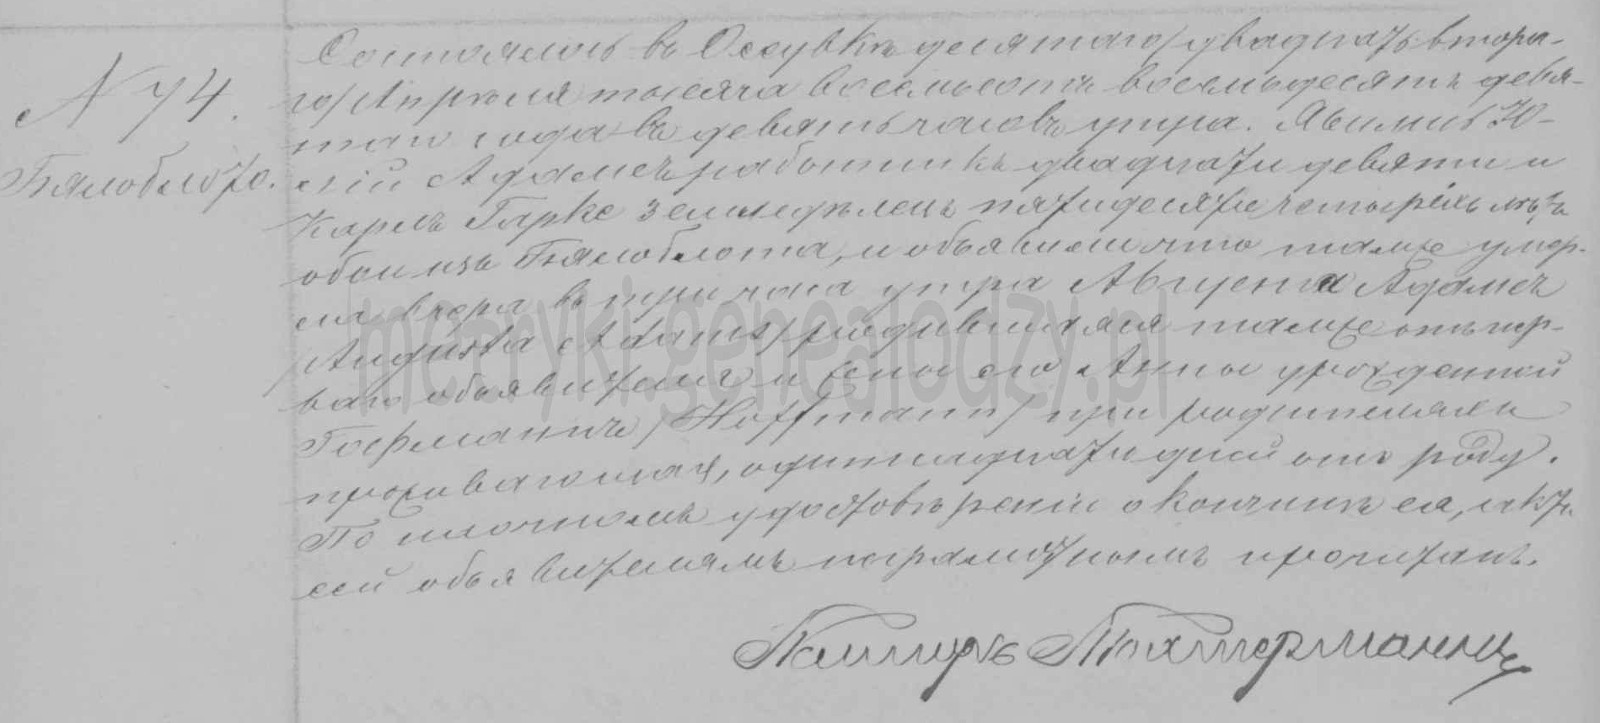 N 74.
Бялоблото.
Состоялось въ Оссувкѣ десятаго/двадцать второ-
го/Апрѣля тысяча восемьсотъ восемьдесятъ девя-
таго года въ девять часовъ утра. Явились Ю-
лій Адамсъ работникъ двадцати девяти и
Карлъ Гарке земледѣлецъ пятидесяти четырехъ лѣтъ
обои изъ Бялоблота, и объявили что тамже умер-
ла вчера въ три часа утра Августа Адамсъ
/Augusta Adams/ родившаяся тамже отъ пер-
ваго объявителя и жены его Анны урожденной
Гофманнъ /Hoffmann/ при родителяхъ
проживающая, одиннадцати дней отъ роду.
По личномъ удостовѣреніи о кончинѣ ея, актъ
сей объявителямъ неграмотнымъ прочитанъ.
Пасторъ
metryki.genealodzy.pl